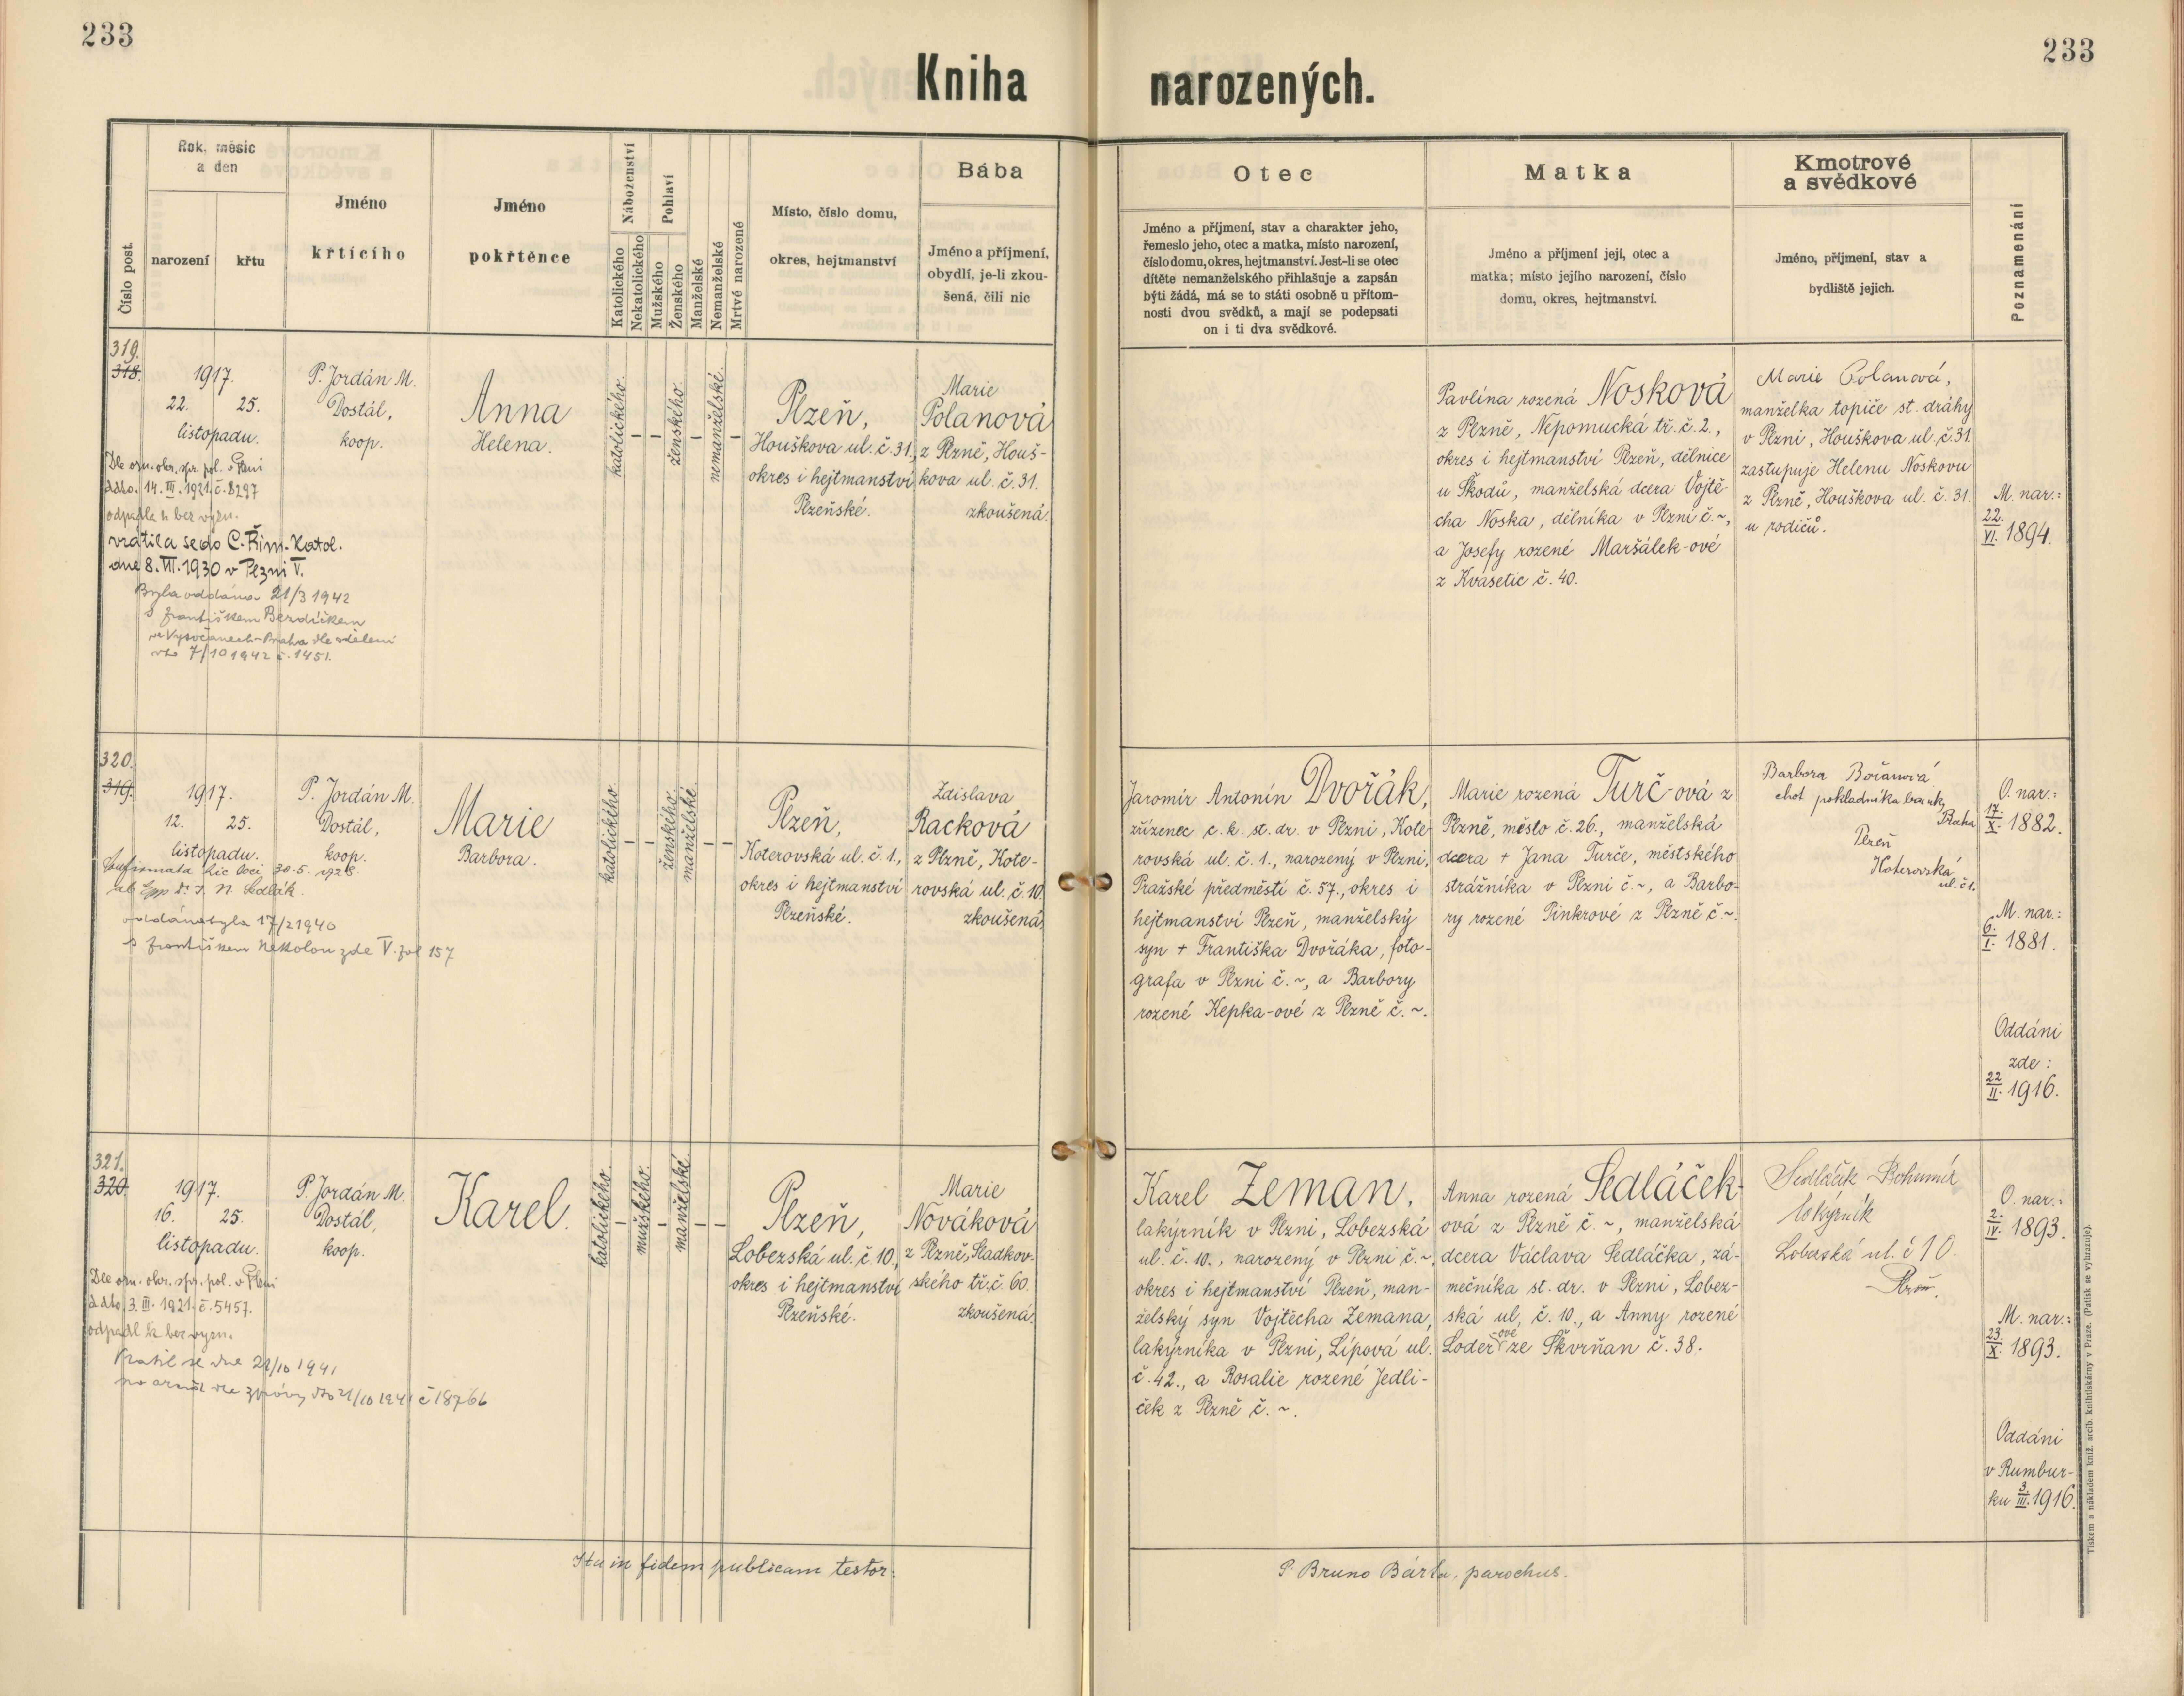 233
233
Kniha narozených.
Číslo post.
Rok, měsíc
a den
narození
křtu
Jméno
křtícího
Jméno
pokřtěnce
Náboženství
Katolického
Nekatolického
Pohlaví
Mužského
Ženského
Manželské
Nemanželské
Mrtvé narozené
Místo, číslo domu,
okres, hejtmanství
Bába
Jméno a příjmení,
obydlí, je-li zkou-
šená, čili nic
Otec
Jméno a příjmení, stav a charakter jeho,
řemeslo jeho, otec a matka, místo narození,
číslo domu, okres, hejtmanství. Jest-li se otec
dítěte nemanželského přihlašuje a zapsán
býti žádá, má se to státi osobně u přítom-
nosti dvou svědků, a mají se podepsati
on i ti dva svědkové.
Matka
Jméno a příjmení její, otec a
matka; místo jejího narození, číslo
domu, okres, hejtmanství.
Kmotrové
a svědkové
Jméno, příjmení, stav a
bydliště jejich.
Poznamenání
319.
318.
1917.
22. 25.
listopadu.
Dle ozn. okr. spr. pol. v Plzni
ddto. 14. III. 1921. č. 8297
odpadla k bez vyzn.
vrátila se do C. Řím. Katol.
dne 8. VII. 1930 v Plzni V.
Byla oddána 21/3 1942
s Františkem Bezdíčkem
ve Vysočanech-Praha dle sdělení
7/10 1942 č. 1451.
P. Jordán M.
Dostál,
koop.
Anna
Helena.
katolického.
–
–
ženského.
–
nemanželské.
–
Plzeň,
Houškova ul. č. 31.,
okres i hejtmanství
Plzeňské.
Marie
Polanová
z Plzně, Houš-
kova ul. č. 31.
zkoušená.
Pavlína rozená Nosková
z Plzně, Nepomucká tř. č. 2.,
okres i hejtmanství Plzeň, dělnice
u Škodů, manželská dcera Vojtě-
cha Noska, dělníka v Plzni č. ~,
a Josefy rozené Maršálek-ové
z Kvasetic č. 40.
Marie Polanová,
manželka topiče st. dráhy
v Plzni, Houškova ul. č. 31.
zastupuje Helenu Noskovu
z Plzně, Houškova ul. č. 31.
u rodičů.
M. nar.:
22./VI. 1894.
320.
319.
1917.
12. 25.
listopadu.
Confirmata hic loci 30. 5. 1928.
ab Epp Dr. J. N. Sedlák.
oddána byla 17/2 1940
s Františkem Nekolou zde V. fol 157
P. Jordán M.
Dostál,
koop.
Marie
Barbora.
katolického.
–
–
ženského.
manželské.
–
–
Plzeň,
Koterovská ul. č. 1.,
okres i hejtmanství
Plzeňské.
Zdislava
Racková
z Plzně, Kote-
rovská ul. č. 10.
zkoušená.
Jaromír Antonín Dvořák,
zřízenec c. k. st. dr. v Plzni, Kote-
rovská ul. č. 1., narozený v Plzni,
Pražské předměstí č. 57., okres i
hejtmanství Plzeň, manželský
syn + Františka Dvořáka, foto-
grafa v Plzni č. ~, a Barbory
rozené Kepka-ové z Plzně č. ~.
Marie rozená Turč-ová z
Plzně, město č. 26., manželská
dcera + Jana Turče, městského
strážníka v Plzni č. ~, a Barbo-
ry rozené Pinkrové z Plzně č. ~.
Barbora
choť pokladníka banky
Praha
Plzeň
Koterovská
ul. č. 1.
O. nar.:
17./X. 1882.
M. nar.:
6./I. 1881.
Oddáni
zde:
22/II. 1916.
321.
320.
1917.
16. 25.
listopadu.
Dle ozn. okr. spr. pol. v Plzni
ddto. 3. III. 1921. č. 5457.
odpadl k bez vyzn.
Vrátil se dne 21/10 1941
dle zprávy dto 21/10 1941 č 18766
P. Jordán M.
Dostál,
koop.
Karel.
katolického.
–
mužského.
–
manželské.
–
–
Plzeň,
Lobezská ul. č. 10.,
okres i hejtmanství
Plzeňské.
Marie
Nováková
z Plzně, Sladkov-
ského tř. č. 60.
zkoušená.
Karel Zeman,
lakýrník v Plzni, Lobezská
ul. č. 10., narozený v Plzni č. ~,
okres i hejtmanství Plzeň, man-
želský syn Vojtěcha Zemana,
lakýrníka v Plzni, Lípová ul.
č. 42., a Rosalie rozené Jedli-
ček z Plzně č. ~.
Anna rozená Sedláček-
ová z Plzně č. ~, manželská
dcera Václava Sedláčka, zá-
mečníka st. dr. v Plzni, Lobez-
ská ul. č. 10., a Anny rozené
Loder-ové ze Škvrňan č. 38.
Sedláček Bohumír
lakýrník
Lobezská ul. č 10.
Plzeň.
O. nar.:
2./IV. 1893.
M. nar.:
23./X. 1893.
Oddáni
v Rumbur-
ku 3./III. 1916.
Ita in fidem publicam testor:
P. Bruno Bárta, parochus.
Tiskem a nákladem kníž. arcib. knihtiskárny v Praze. (Patisk se vyhrazuje).